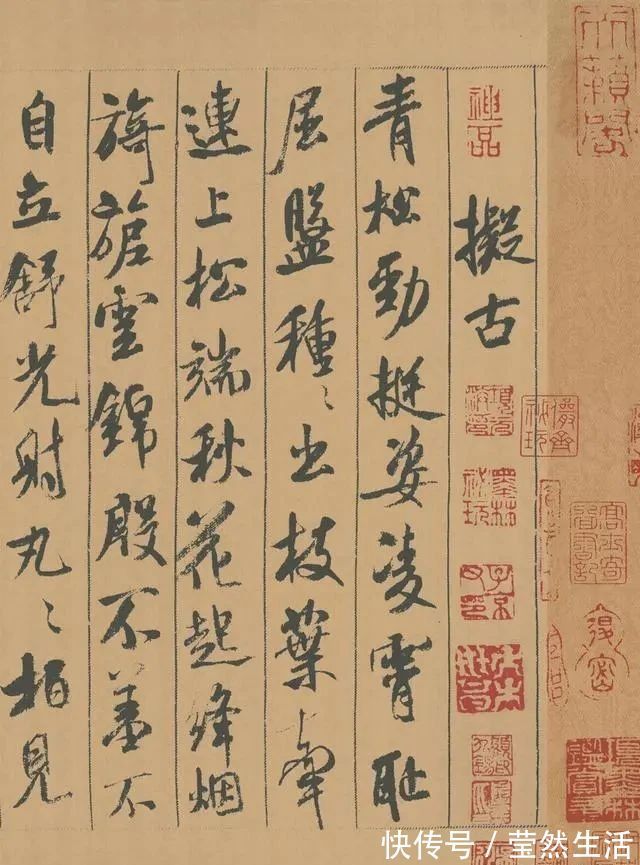 擬古
青松勁挺姿凌霄恥
屈盤種〻出枝葉牽
連上松端秋花起絳烟
旖旎雲錦殷不羞不
自立舒光射丸〻柏見
墨林秘玩
儼齋秘玩
快传号／莹然生活